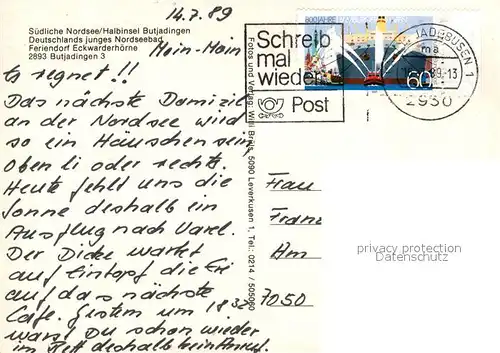 14.7.89
Südliche Nordsee/Halbinsel Butjadingen
Deutschlands junges Nordseebad
Feriendorf Eckwarderhörne
2893 Butjadingen 3
Moin-Moin
Es regnet!!
Das nächste Domizil
an der Nordsee wird
so ein Häuschen sein
oben li oder rechts.
Heute fehlt uns die
Sonne deshalb ein
Ausflug nach Varel.
Der Dicke wartet
auf Eintopf die
auf das nächste
Cafe. Gestern um 18
warst Du schon wieder
im Bett deshalb kein Anruf.
Fotos und Verlag Willi 5090 Leverkusen 1, Tel.: 0214 / 505060
800 JAHRE HAFEN
60
Schreib
mal
wieder
Post
JADEBUSEN 1
ma
89.13
2930
Frau
Franz
Am
7050
privacy protection
Datenschutz